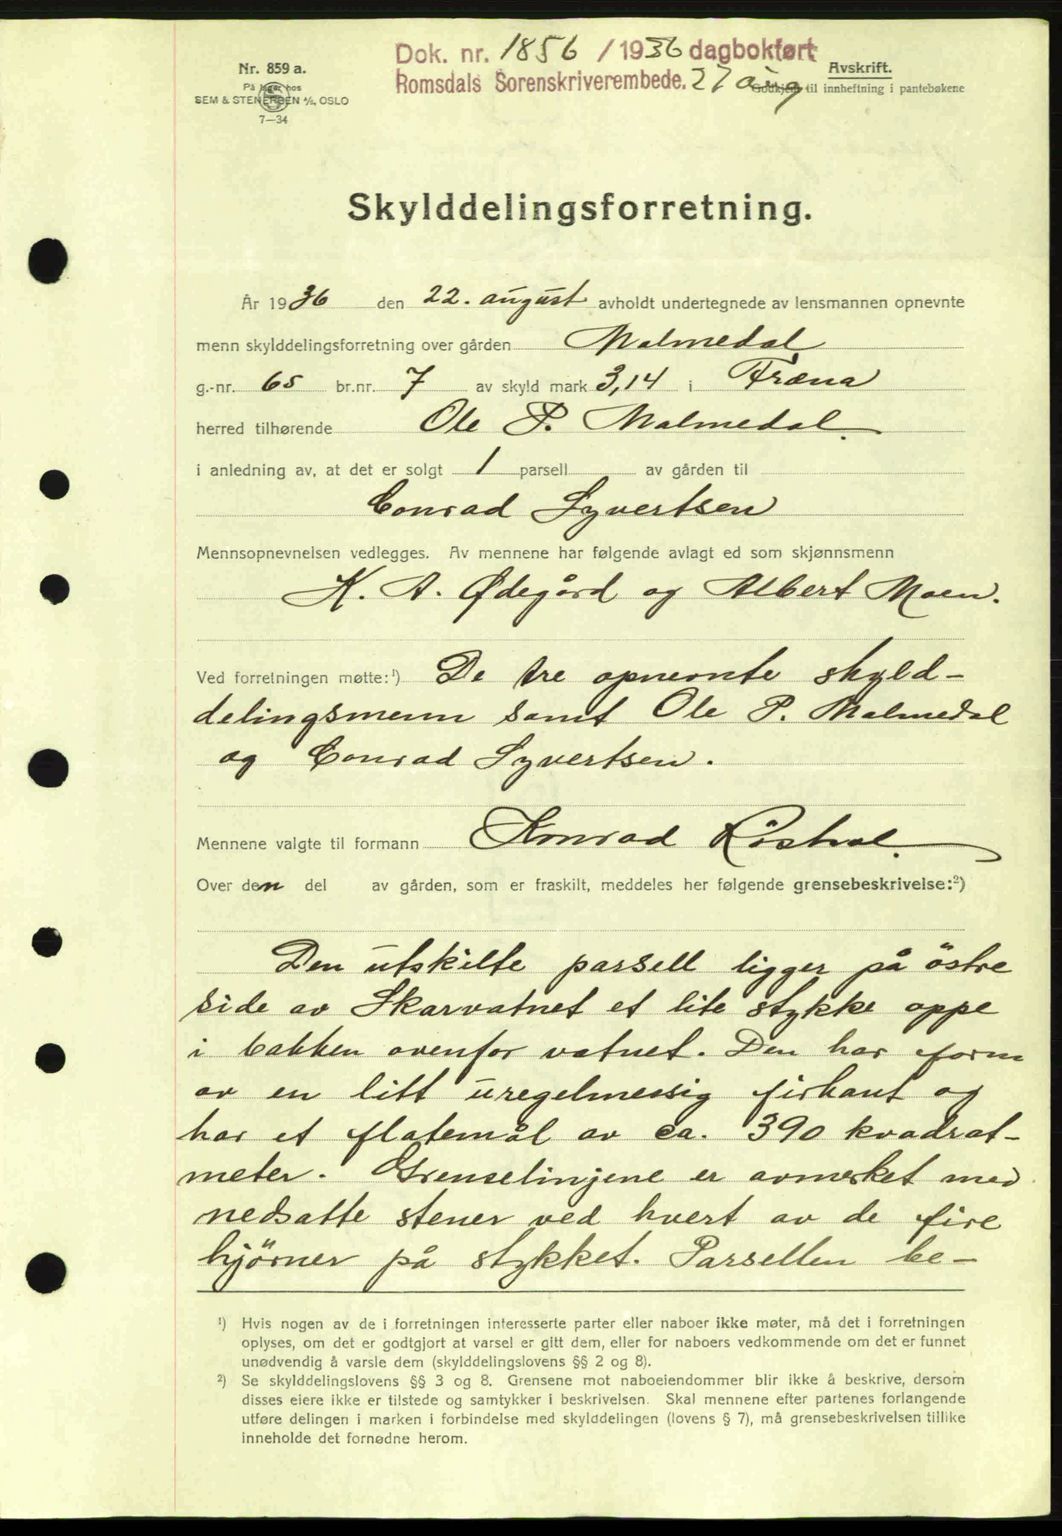 Dok. nr. 1856 / 1936 dagbokført
Romsdals Sorenskriverembede. 27 aug
Nr. 859 a.
På lager hos
SEM & STENERSEN A/S, OSLO
7—34
Avskrift.
Godkjent til innheftning i pantebøkene
Skylddelingsforretning.
År 1936 den 22. august avholdt undertegnede av lensmannen opnevnte
menn skylddelingsforretning over gården Malmedal
g.-nr. 65 br.nr. 7 av skyld mark 3,14 i Fræna
herred tilhørende Ole P. Malmedal.
i anledning av, at det er solgt 1 parsell av gården til
Conrad Syvertsen
Mennsopnevnelsen vedlegges. Av mennene har følgende avlagt ed som skjønnsmenn
K. A. Ødegård og Albert Moen.
Ved forretningen møtte:¹) De tre opnevnte skyld-
delingsmenn samt Ole P. Malmedal
og Conrad Syvertsen.
Mennene valgte til formann Konrad
Over den del av gården, som er fraskilt, meddeles her følgende grensebeskrivelse:²)
Den utskilte parsell ligger på östre
side av Skarvatnet et lite stykke oppe
i bakken ovenfor vatnet. Den har form
av en litt uregelmessig firkant og
har et flatemål av ca. 390 kvadrat-
meter. Grenselinjene er avmerket med
nedsatte stener ved hvert av de fire
hjörner på stykket. Parsellen be-
¹) Hvis nogen av de i forretningen interesserte parter eller naboer ikke møter, må det i forretningen
oplyses, om det er godtgjort at varsel er gitt dem, eller for naboers vedkommende om det er funnet
unødvendig å varsle dem (skylddelingslovens §§ 2 og 8).
²) Se skylddelingslovens §§ 3 og 8. Grensene mot naboeiendommer blir ikke å beskrive, dersom
disses eiere ikke er tilstede og samtykker i beskrivelsen. Skal mennene efter partenes forlangende
utføre delingen i marken i forbindelse med skylddelingen (lovens § 7), må grensebeskrivelsen tillike
inneholde det fornødne herom.